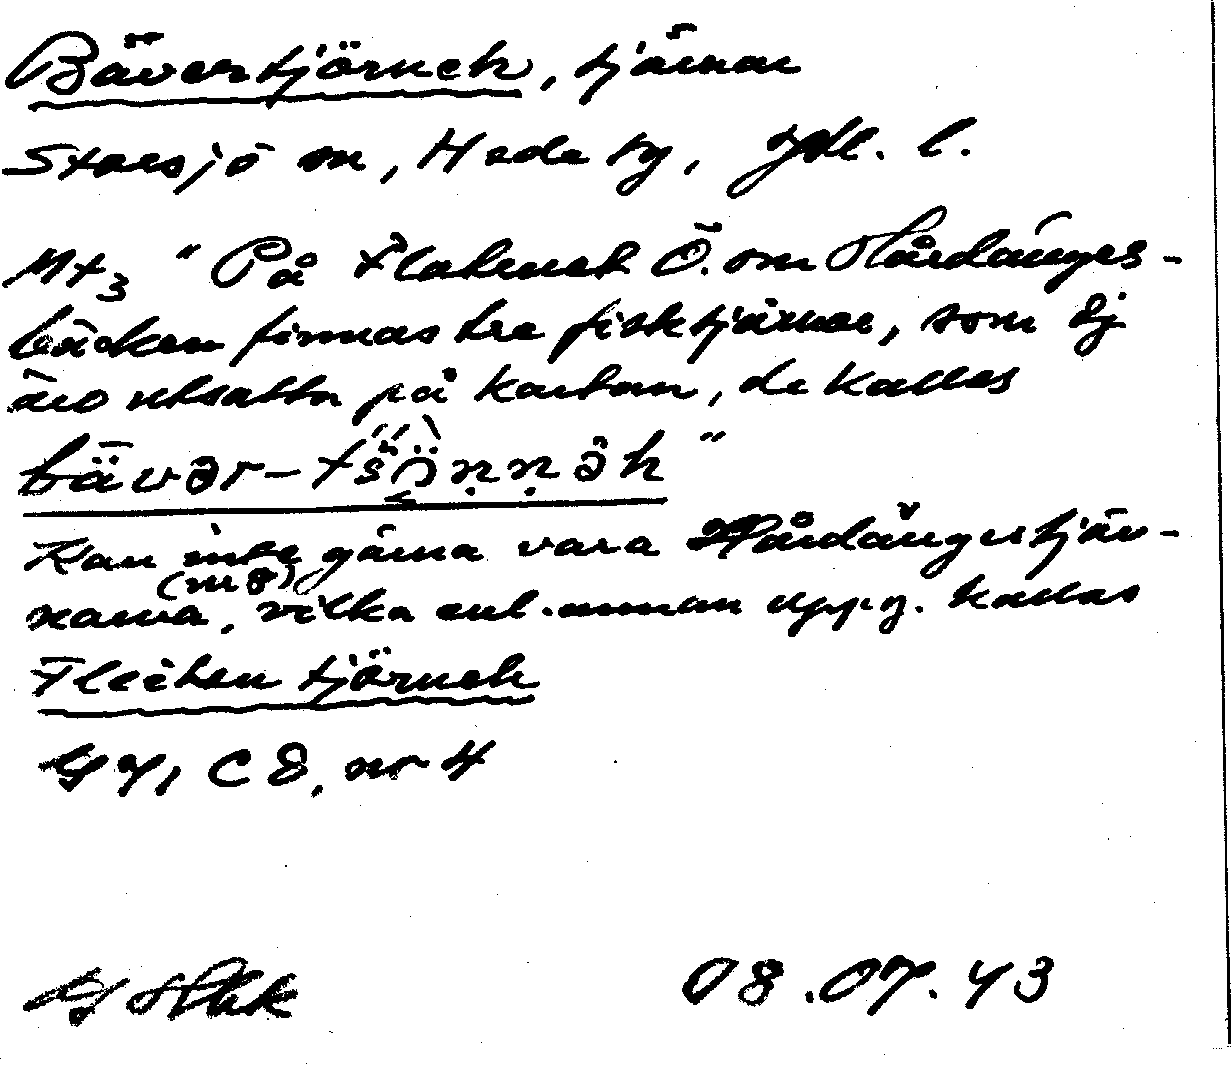 Bävertjörneh, tjärnar
Storsjö sn, Hede tg, Jtl. l.
Mt3 "På Flakneh Ö. om Hårdänges-
bäcken finnas tre fisktjärnar, som ej
äro utsatta på kartan, de kallas
bävər-tšönnəh"
Kan inte gärna vara Hårdängestjär-
narna (nr 8), vilka enl. annan uppg. kallas
tjörneh
G71 C8, nr 4
08.07.43